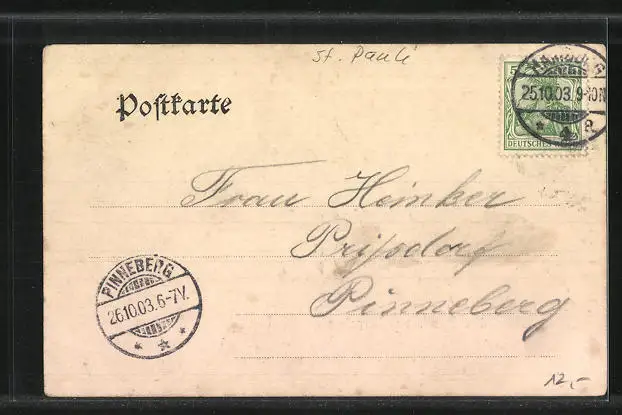 St. Pauli
Postkarte
5
HAMBURG
25.10.03. 9-10N
* 4 a.
DEUTSCHES
Frau Heinker
Prisdorf
Pinneberg
PINNEBERG
26.10.03. 6-7V.
* * *
12,-